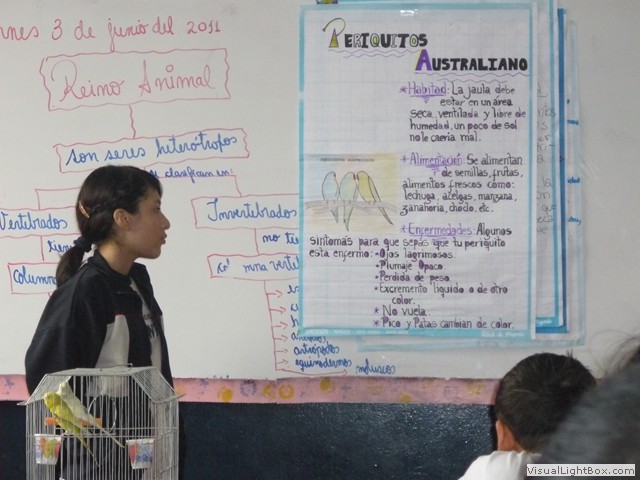 nes 3 de junio del 2011
Reino Animal
son seres heterótrofos
se clasifican en:
Vertebrados
Invertebrados
no
Column
vertebr
artrópodos
equinodermos
moluscos
PERIQUITOS
AUSTRALIANO
* Habitad: La jaula debe
estar en un área
seca, ventilada y libre de
humedad, un poco de sol
no le caería mal.
* Alimentación: Se alimentan
de semillas, frutas,
alimentos frescos como:
lechuga, acelgas, manzana,
zanahoria, choclo, etc.
* Enfermedades: Algunos
sintomas para que sepas que tu periquito
esta enfermo: • Ojos lagrimosos.
• Plumaje Opaco.
• Perdida de peso.
• Excremento líquido o de otro
color.
• No vuela.
• Pico y Patas cambian de color.
www.VisualLightBox.com